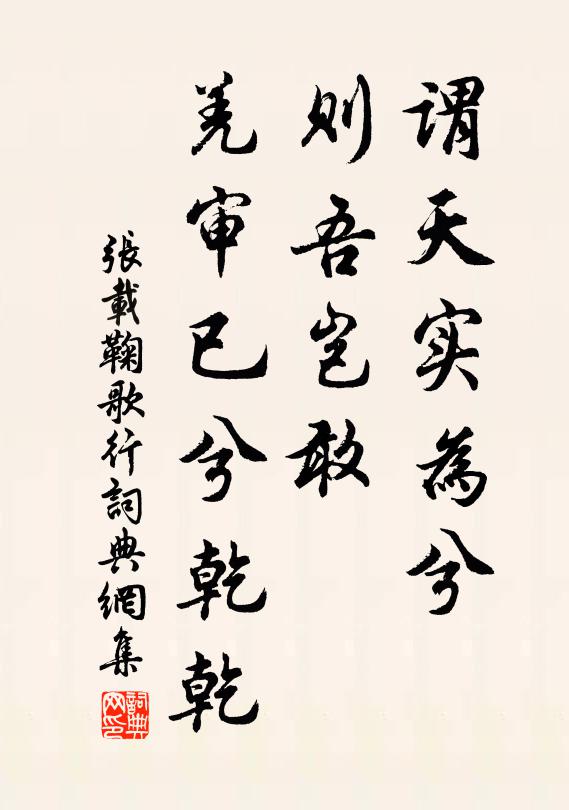 謂天实為兮
則吾岂敢
羌审已兮乾乾
張載鞠歌行詞典網集
詞典
网印